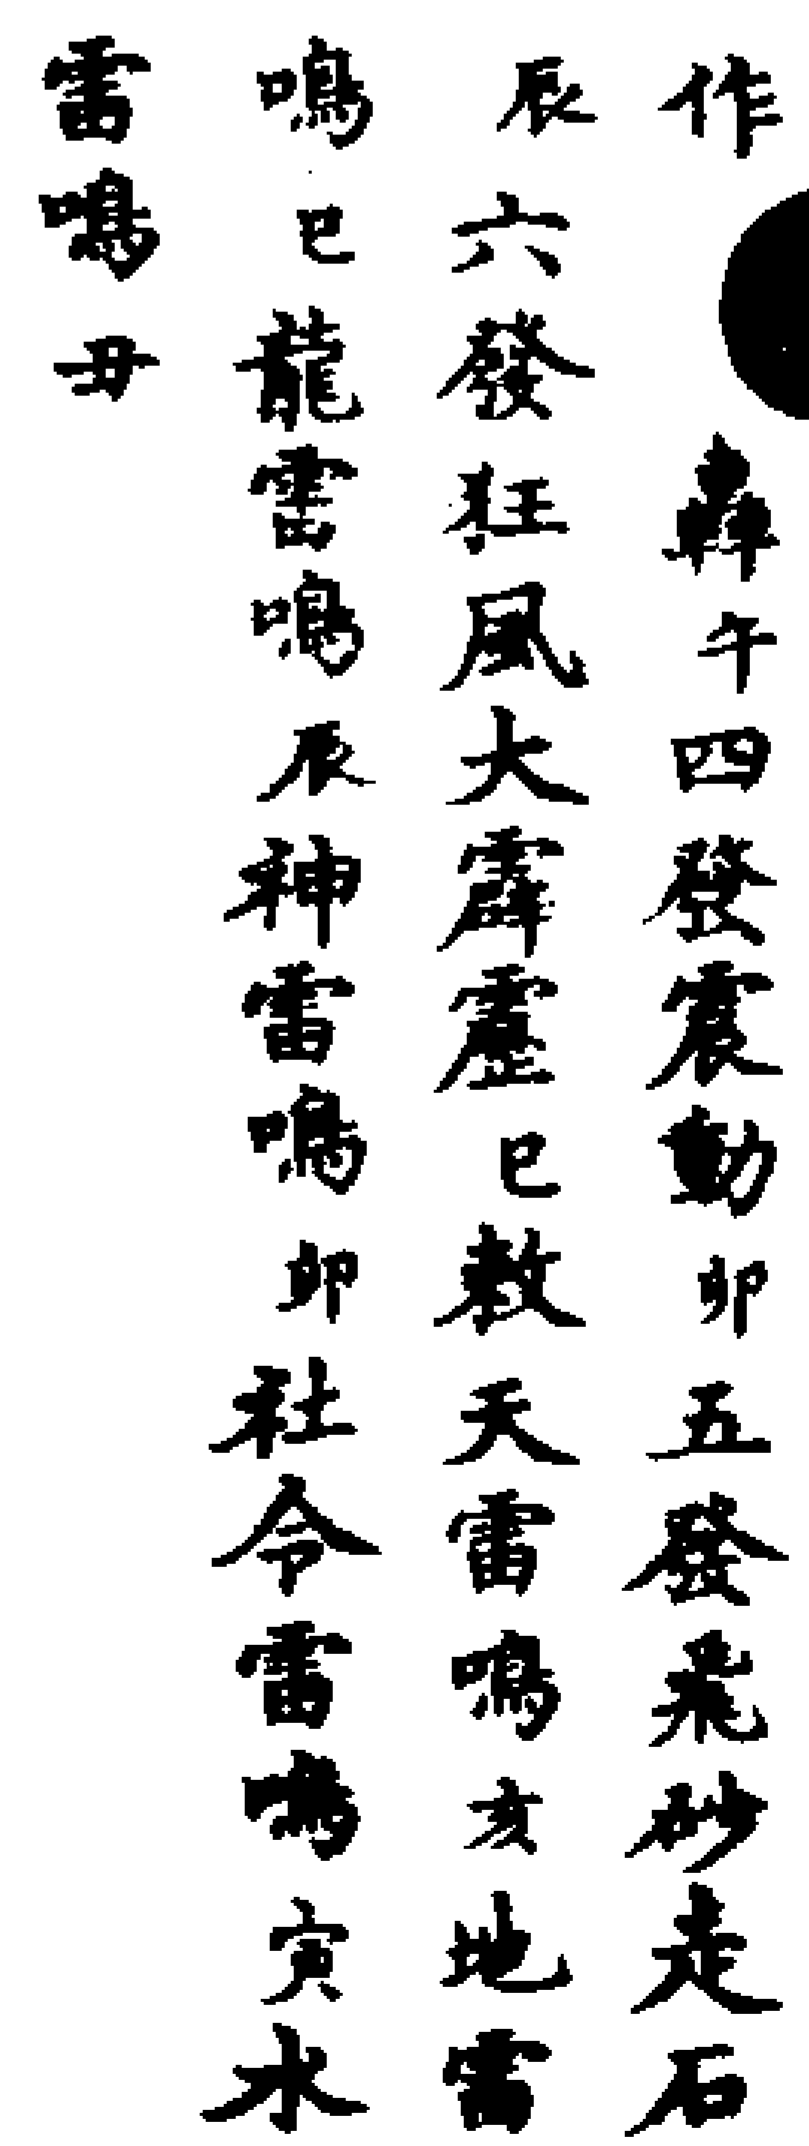 作轟午四發震動卯五發飛砂走石
辰六發狂風大霹靂巳敕天雷鳴亥地雷
鳴巳龍雷鳴辰神雷鳴卯社令雷鳴寅水
雷鳴丑